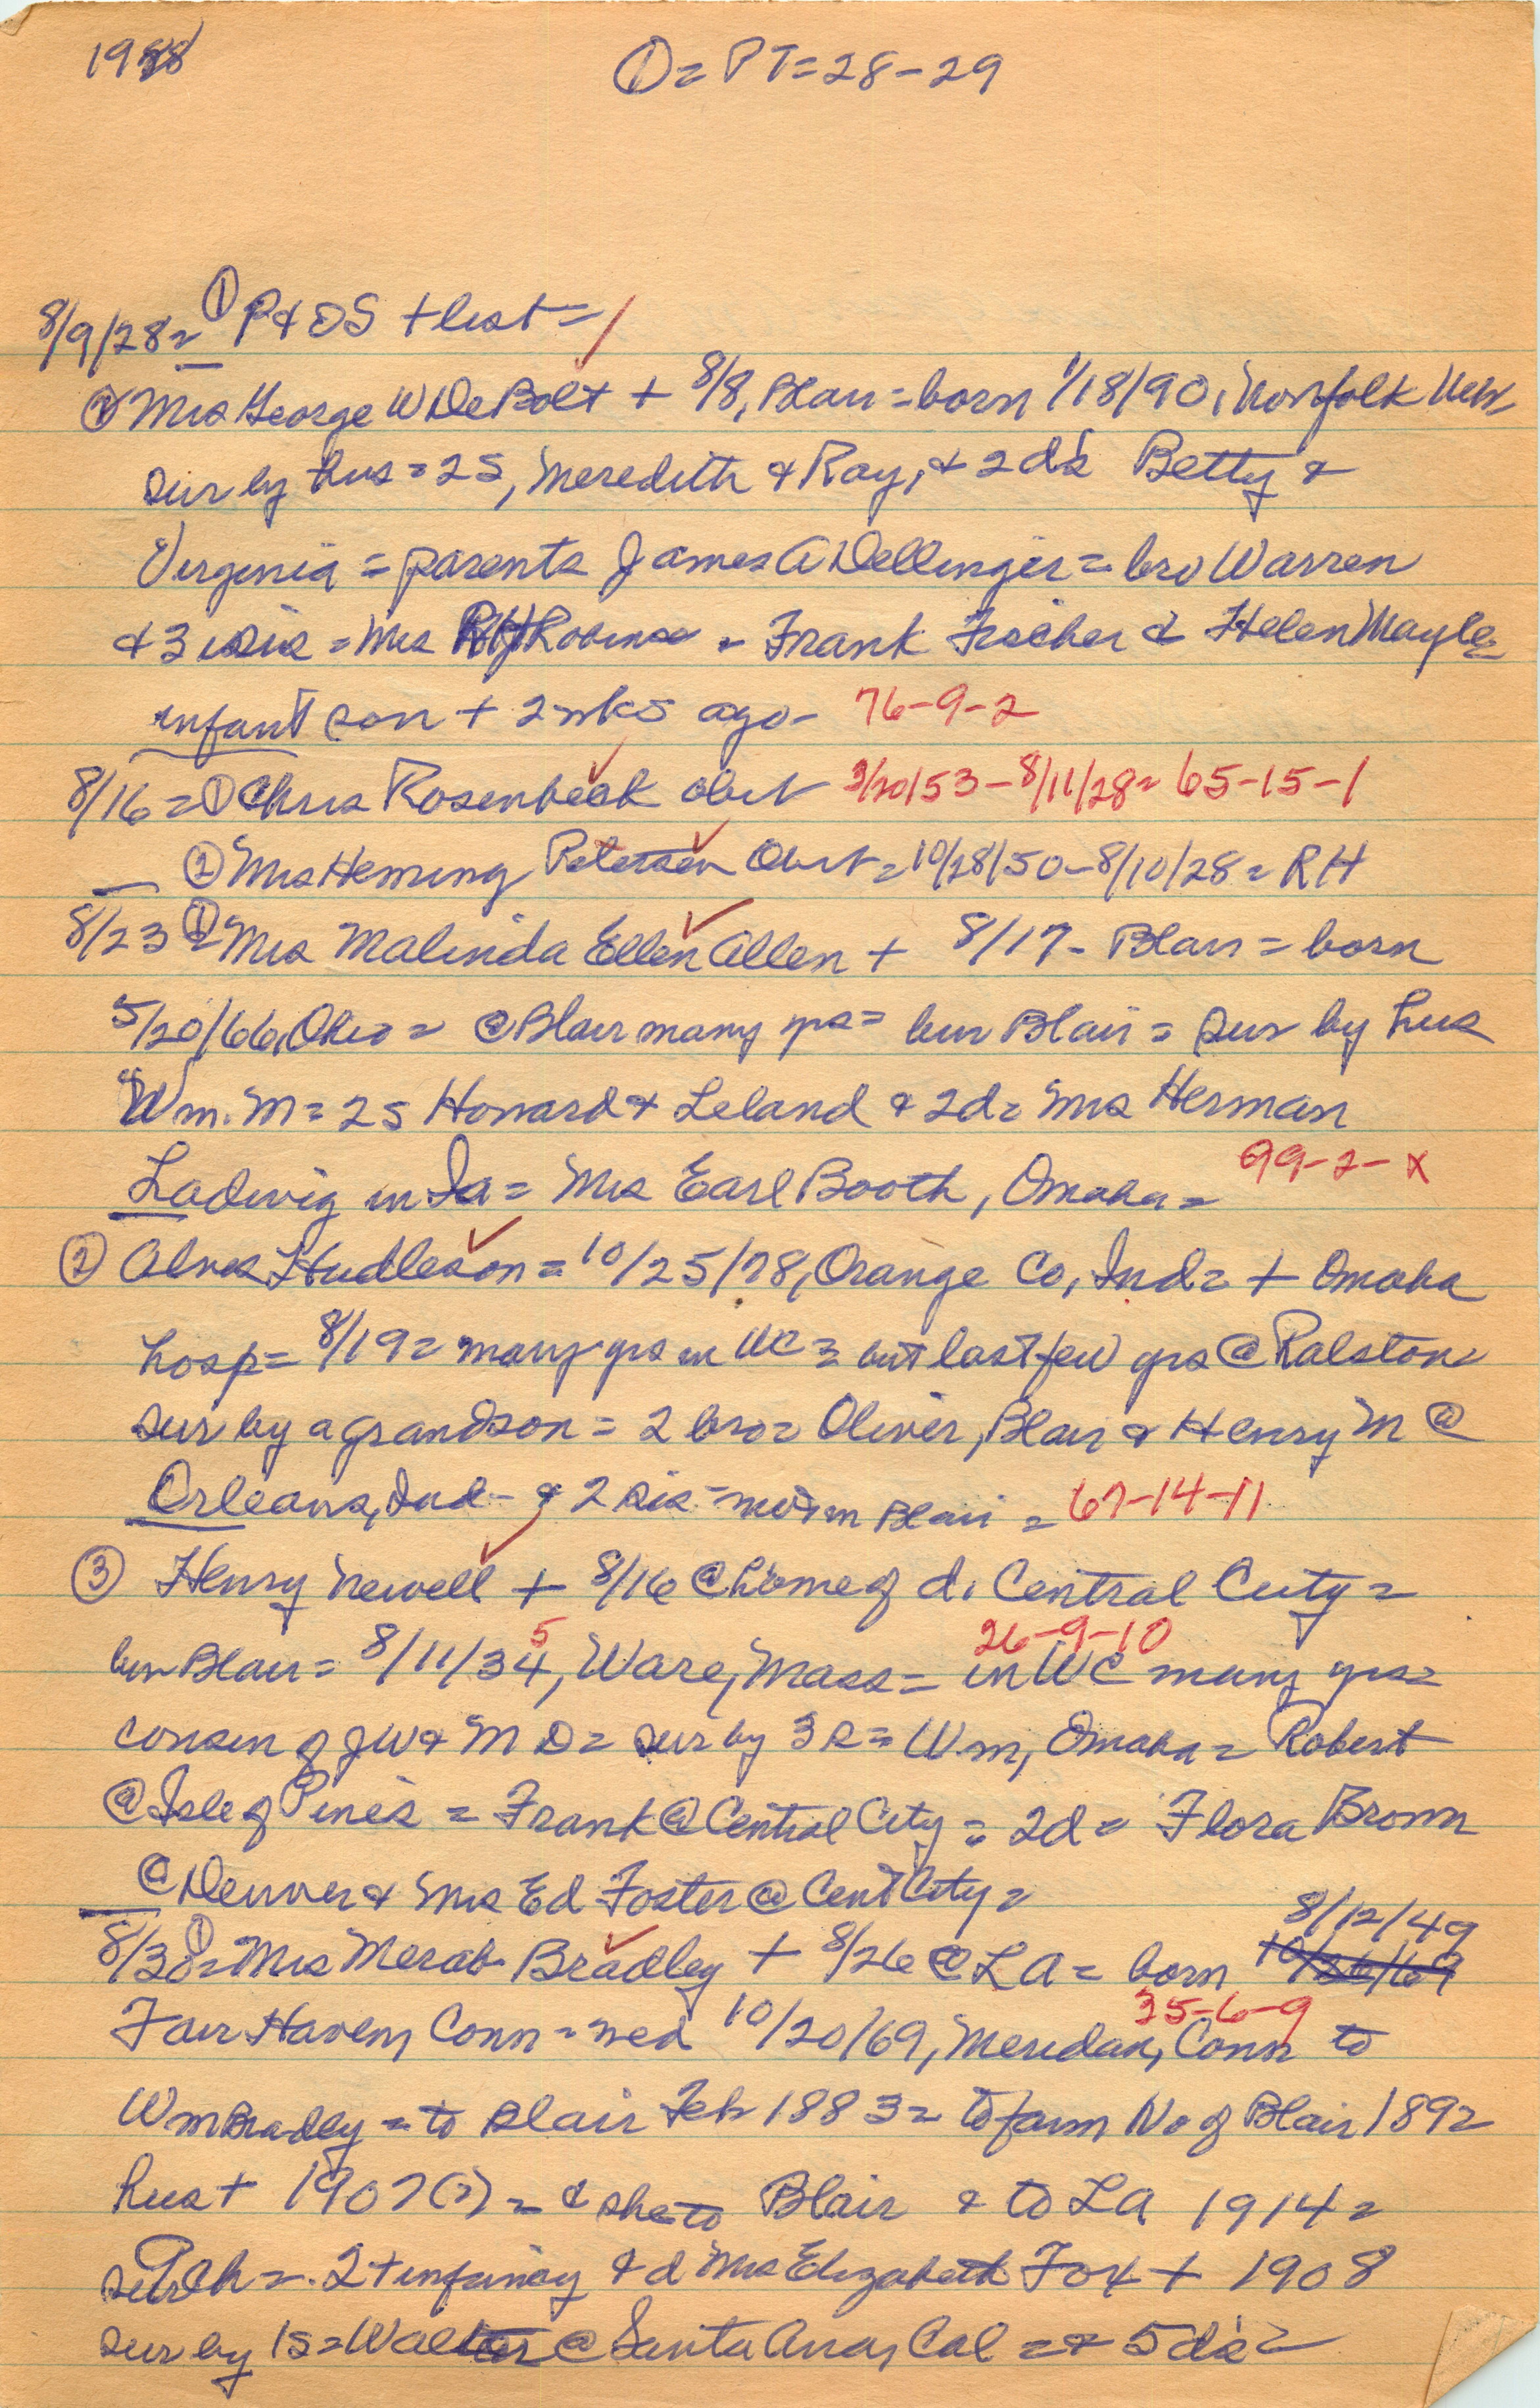 1928
① = PT = 28-29
8/9/28 = ① P & OS + list = /
② Mrs George W DeBolt + 8/8, Blair = born 1/18/90, Norfolk Neb,
sur by hus = 2S, Meredith & Ray, & 2 d's Betty &
Virginia = parents James A Dellinger = bro Warren
& 3 sis = Mrs Robinson = Frank Fischer & Helen Mayle
infant son + 2 wks ago - 76-9-2
8/16 = ① Chris Rosenbeck obit 3/20/53 - 8/11/28 = 65-15-1
② Mrs Heming Petersen Obit = 10/28/50 - 8/10/28 = RH
8/23 ① = Mrs Malinda Ellen Allen + 8/17 - Blair = born
5/20/66, Ohio = @ Blair many yrs = bur Blair = sur by hus
Wm. M = 2S Howard & Leland & 2d = Mrs Herman
Ladwig in Ia = Mrs Earl Booth, Omaha = 99-2-X
② Hudleson = 10/25/78, Orange Co, Ind = + Omaha
hosp = 8/19 = many yrs in WC = but last few yrs @ Ralston
sur by a grandson = 2 bro = Oliver, Blair & Henry M @
Orleans, Ind - & 2 sis - in Blair = 67-14-11
③ Henry Newell + 8/16 @ home of d. Central City =
5 26-9-10
bur Blair = 8/11/34, Ware, Mass = in WC many yrs =
cousin of JW & MD = sur by 3 s = Wm, Omaha = Robert
@ Isle of Pines = Frank @ Central City = 2d = Flora Brown
@ Denver & Mrs Ed Foster @ Cent City =
8/12/49
8/30 ① = Mrs Merab Bradley + 8/26 @ LA = born 10/26/69
35-6-9
Fair Haven, Conn = wed 10/20/69, Meridan, Conn to
Wm Bradley = to Blair Feb 1883 = to farm No of Blair 1892
hus + 1907(?) = & she to Blair & to LA 1914 =
= 2 + infancy & d Mrs Elizabeth Fox + 1908
sur by 1S = Walter @ Santa Ana, Cal = & 5 d's =